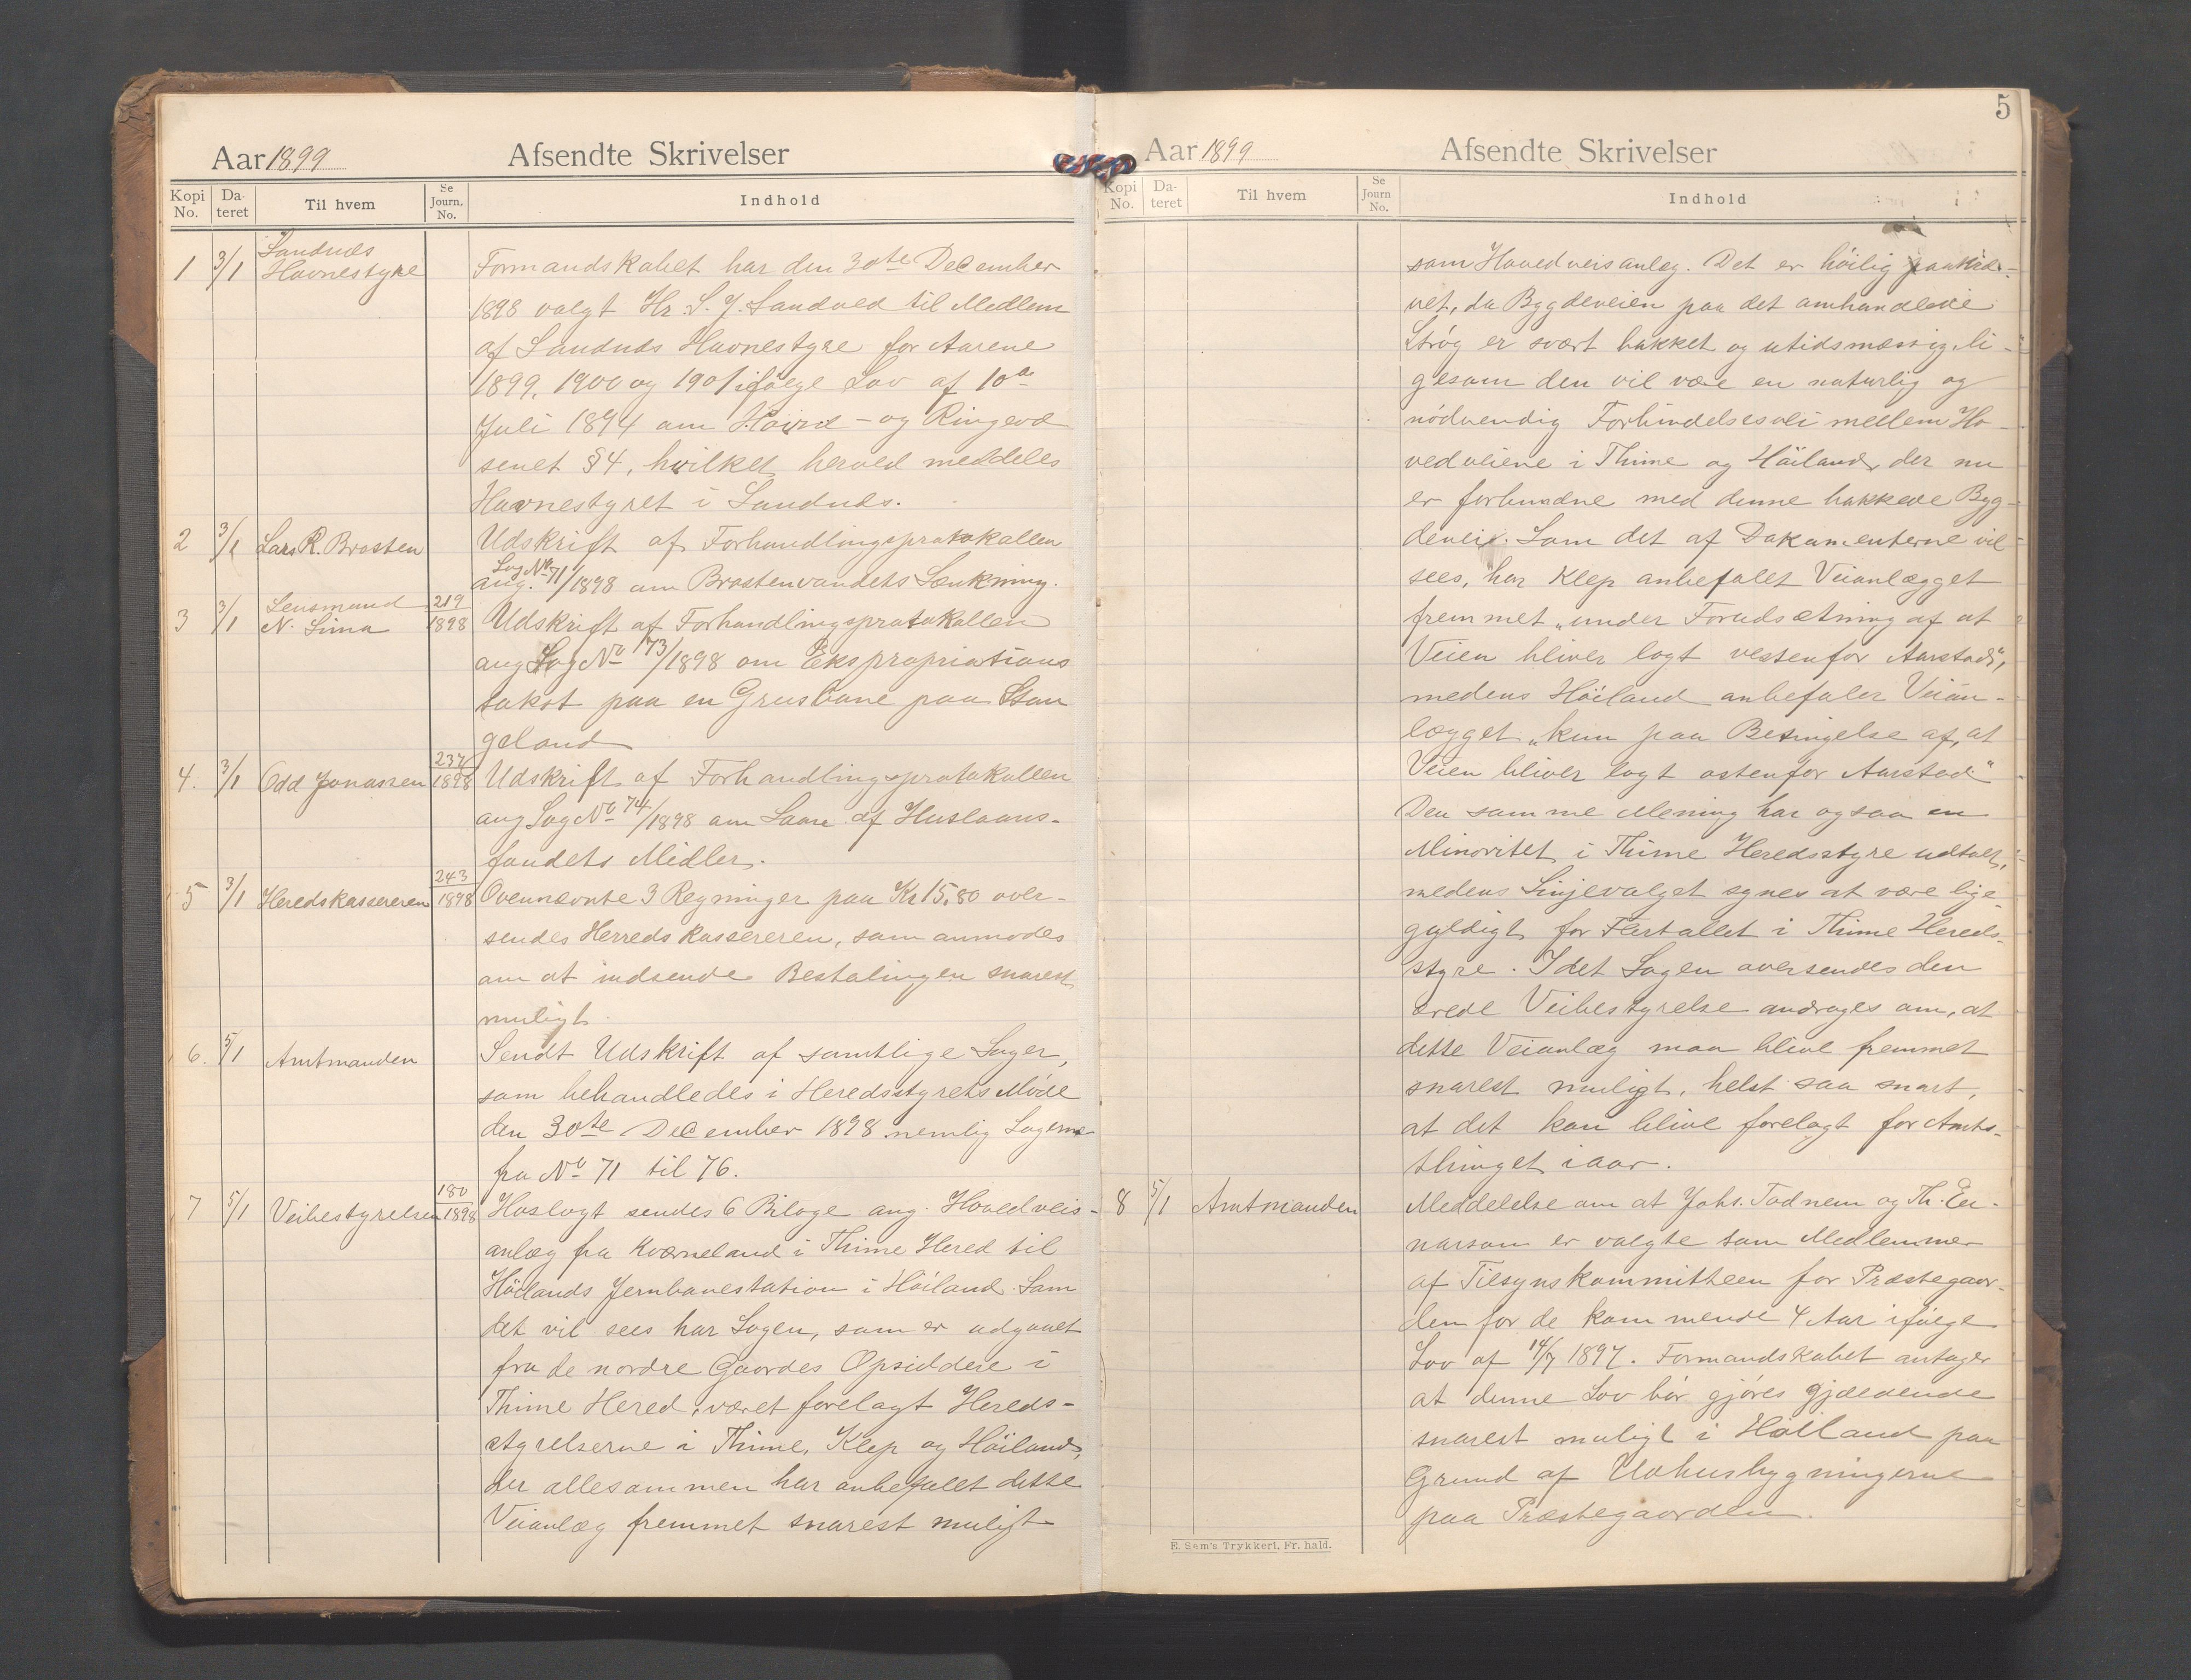 Aar 1899 Afsendte Skrivelser
Kopi No. Da-teret Til hvem Se Journ. No. Indhold
1 3/1 Sandnæs Havnestyre Formandskabet har den 30te December
1898 valgt Hr. S. J. Sandved til Medlem
af Sandnæs Havnestyre for Aarene
1899, 1900 og 1901 ifølge Lov af 10de
Juli 1894 om Havne- og Ringevæ
senet § 4, hvilket herved meddeles
Havnestyret i Sandnæs.
2 3/1 Lars R. Brasten Udskrift af Forhandlingsprotokollen
ang. Sag No 71/1898 om Brastenvandets Sænkning.
3 3/1 Lensmand N. Lima 219/1898 Udskrift af Forhandlingsprotokollen
ang Sag No 73/1898 om Ekspropriations
takst paa en Grusbane paa Stan
geland
4. 3/1 Odd Jonassen 237/1898 Udskrift af Forhandlingsprotokollen
ang Sag No 74/1898 om Laan af Huslaans-
fondets Midler.
5 3/1 Heredskassereren 243/1898 Ovennævnte 3 Regninger paa Kr 15,80 over-
sendes Herredskassereren, som anmodes
om at indsende Bestalingen snarest
muligt.
6. 5/1 Amtmanden Sendt Udskrift af samtlige Sager,
som behandledes i Heredsstyrets Møde
den 30te December 1898 nemlig Sagerne
fra No 71 til 76.
7 5/1 Veibestyrelsen 180/1898 Hoslagt sendes 6 Bilage ang. Hovedveis-
anlæg fra Kværneland i Thime Hered til
Høilands Jernbanestation i Høiland. Som
det vil sees har Sagen, som er udgaaet
fra de nordre Gaardes Opsiddere i
Thime Hered, været forelagt Hereds-
styrelserne i Thime, Klep og Høiland,
der allesammen har anbefalet dette
Veianlæg fremmet snarest muligt
5
Aar 1899 Afsendte Skrivelser
Kopi No. Da-teret Til hvem Se Journ No. Indhold
som Hovedveisanlæg. Det er høilig paakræ-
vet, da Bygdeveien paa det omhandlede
Strøg er svært bakket og utidsmæssig, li-
gesom den vil være en naturlig og
nødvendig Forbindelsesvei mellem Ho-
vedveiene i Thime og Høiland, der nu
er forbundne med denne bakkede Byg-
devei. Som det af Dokumenterne vil
sees, har Klep anbefalet Veianlægget
fremmet „under Forudsætning af at
Veien bliver lagt vestenfor Aarstad",
medens Høiland anbefaler Veian-
lægget „kun paa Betingelse af, at
Veien bliver lagt østenfor Aarstad"
Den samme Mening har ogsaa en
Minoritet i Thime Heredsstyre udtalt,
medens Linjevalget synes at være lige-
gyldigt for Flertallet i Thime Hereds-
styre. Idet Sagen oversendes den
ærede Veibestyrelse andrages om, at
dette Veianlæg maa blive fremmet
snarest muligt, helst saa snart,
at det kan blive forelagt for Amts-
thinget iaar.
8 5/1 Amtmanden Meddelelse om at Johs. Todnem og Th. Ei-
narson er valgte som Medlemmer
af Tilsynskommitteen for Præstegaar-
den for de kommende 4 Aar ifølge
Lov af 14/7 1897. Formandskabet antager
at denne Lov bør gjøres gjældende
snarest muligt i Høiland paa
Grund af Udhusbygningerne
paa Præstegaarden.
E. Sem's Trykkeri, Fr. hald.